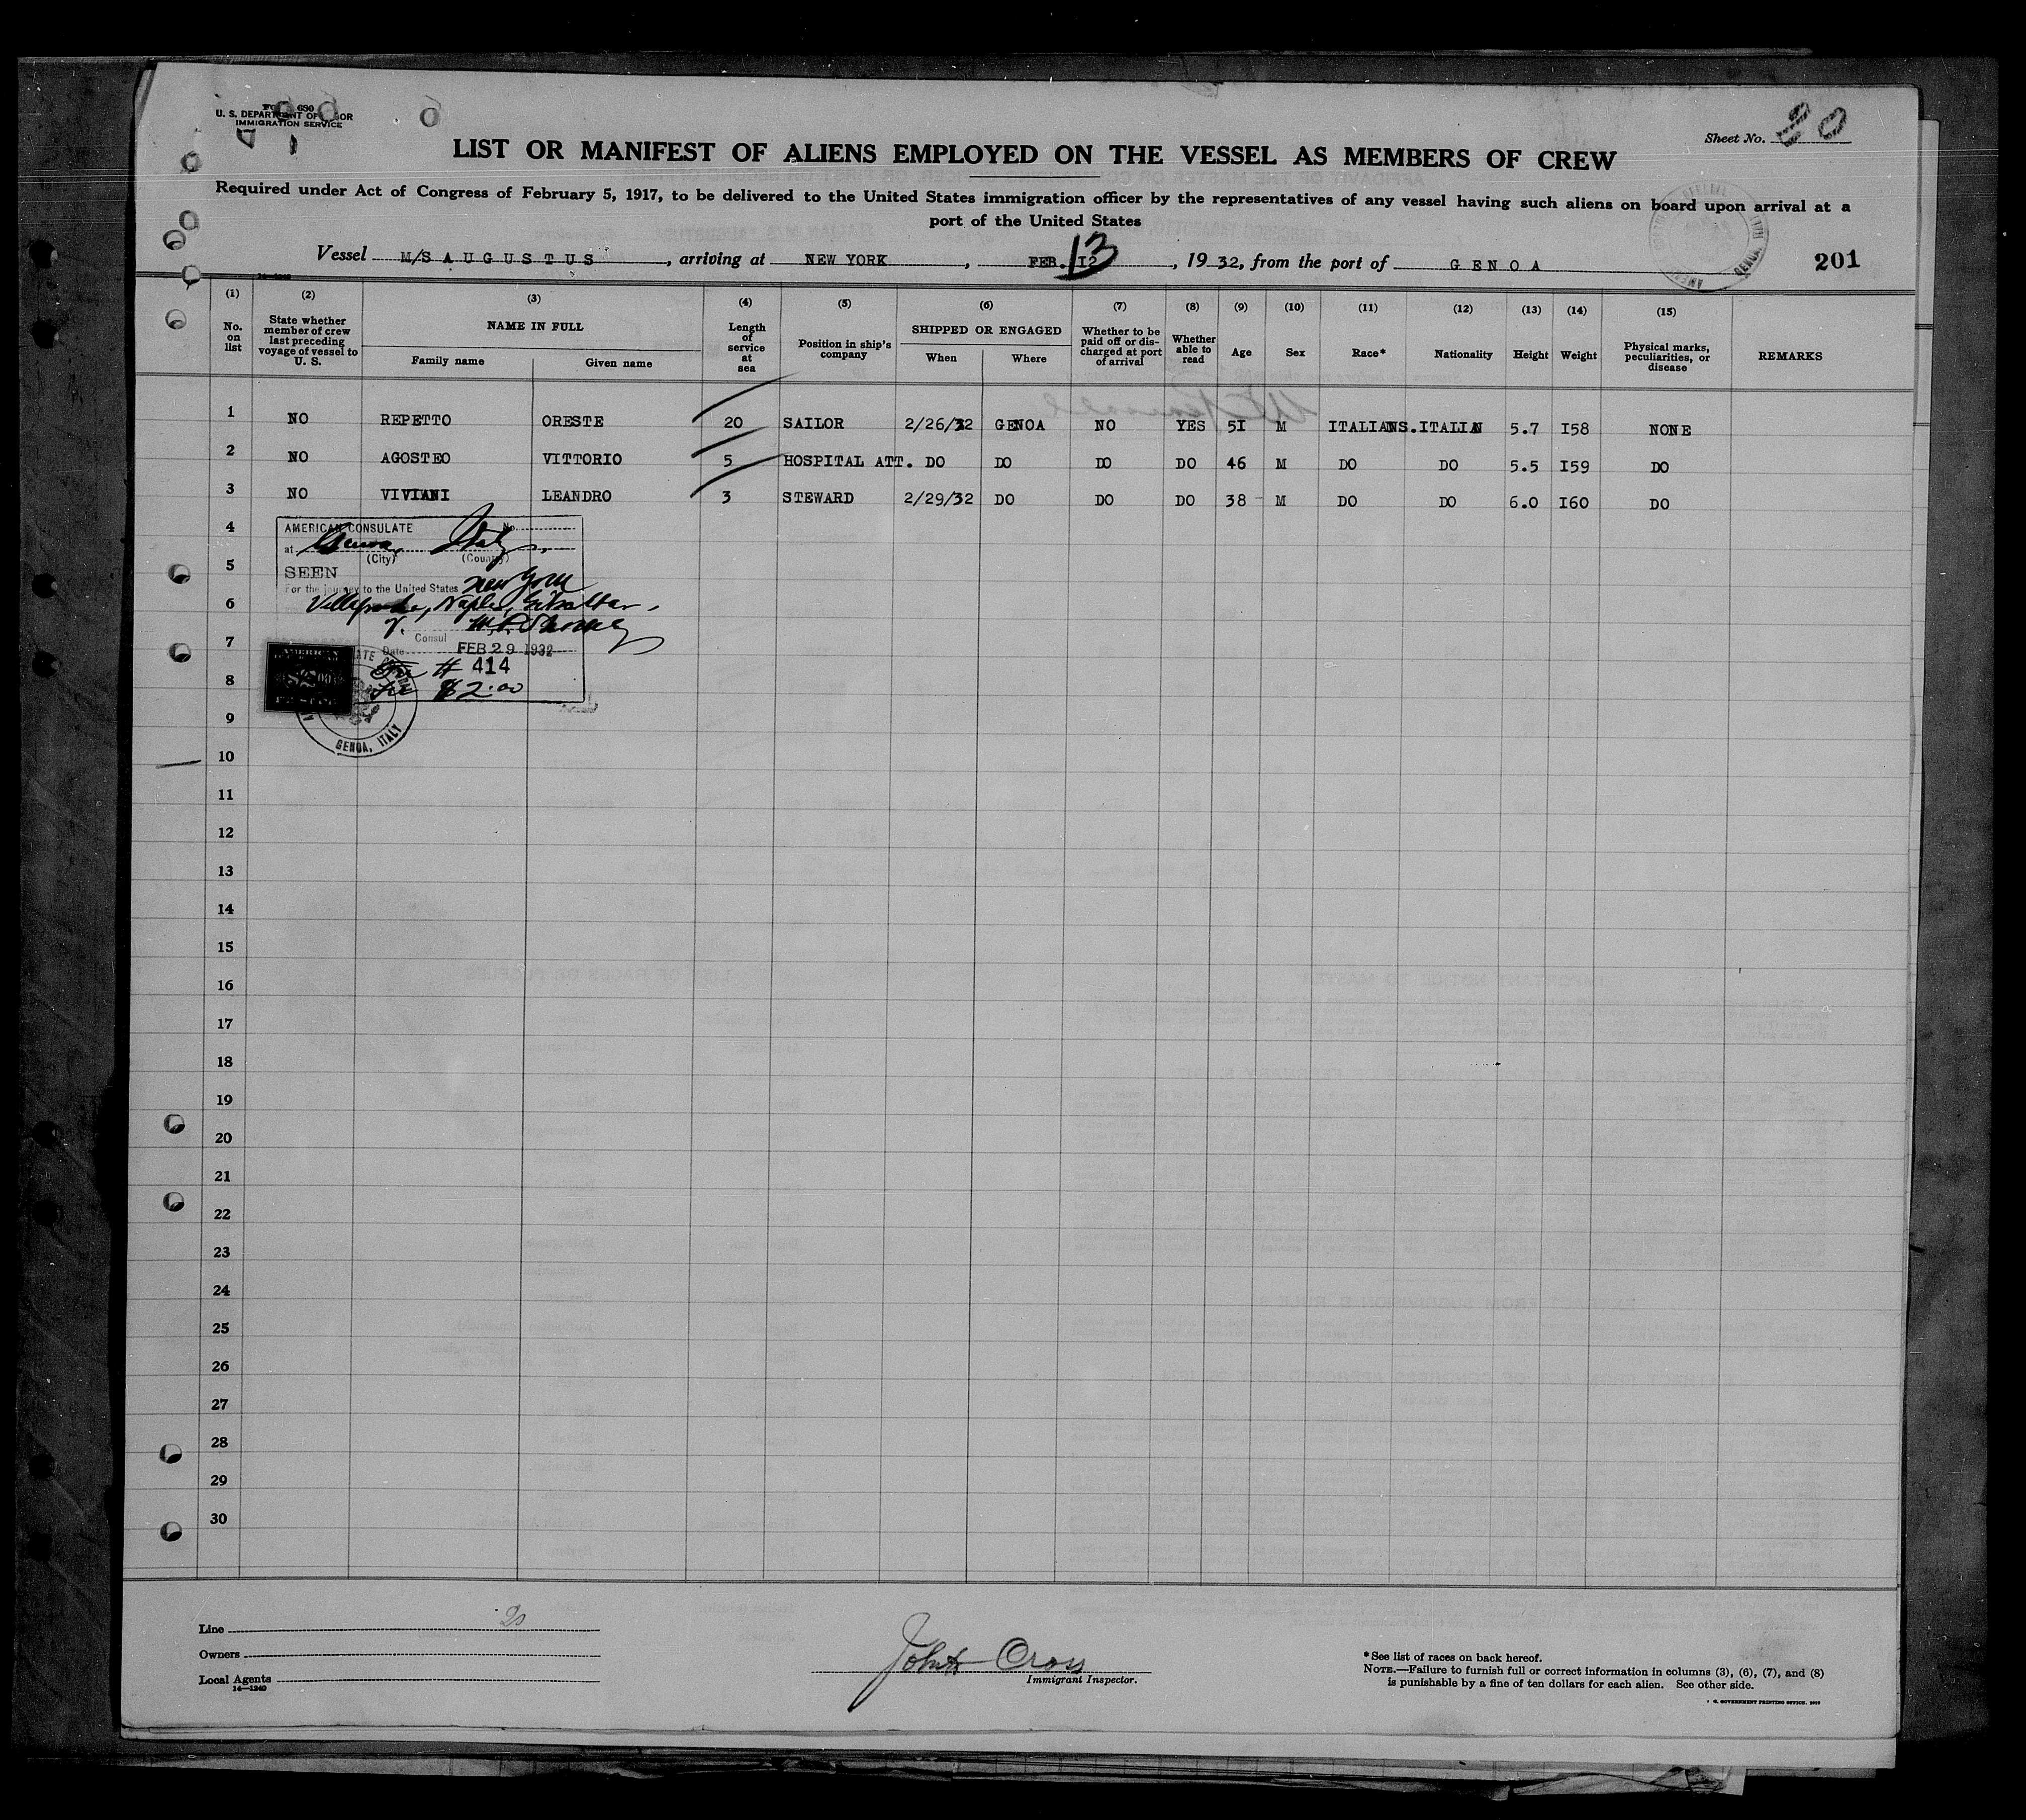 FORM 680
U. S. DEPARTMENT OF LABOR
IMMIGRATION SERVICE
Sheet No. 20
LIST OR MANIFEST OF ALIENS EMPLOYED ON THE VESSEL AS MEMBERS OF CREW
Required under Act of Congress of February 5, 1917, to be delivered to the United States immigration officer by the representatives of any vessel having such aliens on board upon arrival at a
port of the United States
Vessel M/S AUGUSTUS, arriving at NEW YORK, FEB. 12 13, 1932, from the port of GENOA 201
14-1240
(1) (2) (3) (4) (5) (6) (7) (8) (9) (10) (11) (12) (13) (14) (15)
No. on list State whether member of crew last preceding voyage of vessel to U. S. NAME IN FULL Family name Given name Length of service at sea Position in ship's company SHIPPED OR ENGAGED When Where Whether to be paid off or discharged at port of arrival Whether able to read Age Sex Race* Nationality Height Weight Physical marks, peculiarities, or disease REMARKS
1 NO REPETTO ORESTE 20 SAILOR 2/26/32 GENOA NO YES 5I M ITALIANS. ITALIAN 5.7 I58 NONE
2 NO AGOSTEO VITTORIO 5 HOSPITAL ATT. DO DO DO DO 46 M DO DO 5.5 I59 DO
3 NO VIVIANI LEANDRO 3 STEWARD 2/29/32 DO DO DO 38 M DO DO 6.0 I60 DO
4
AMERICAN CONSULATE No.
at Genoa, Italy.
(City) (Country)
5
SEEN
For the journey to the United States New York
6
Villefranche, Naples, Gibraltar.
7
Consul
Date FEB 29 1932
# 414
8
Fee $2.00
9
GENOA, ITALY
10
11
12
13
14
15
16
17
18
19
20
21
22
23
24
25
26
27
28
29
30
20
Line
Owners
Local Agents
14—1240
John Cross
Immigrant Inspector.
*See list of races on back hereof.
NOTE.—Failure to furnish full or correct information in columns (3), (6), (7), and (8)
is punishable by a fine of ten dollars for each alien. See other side.